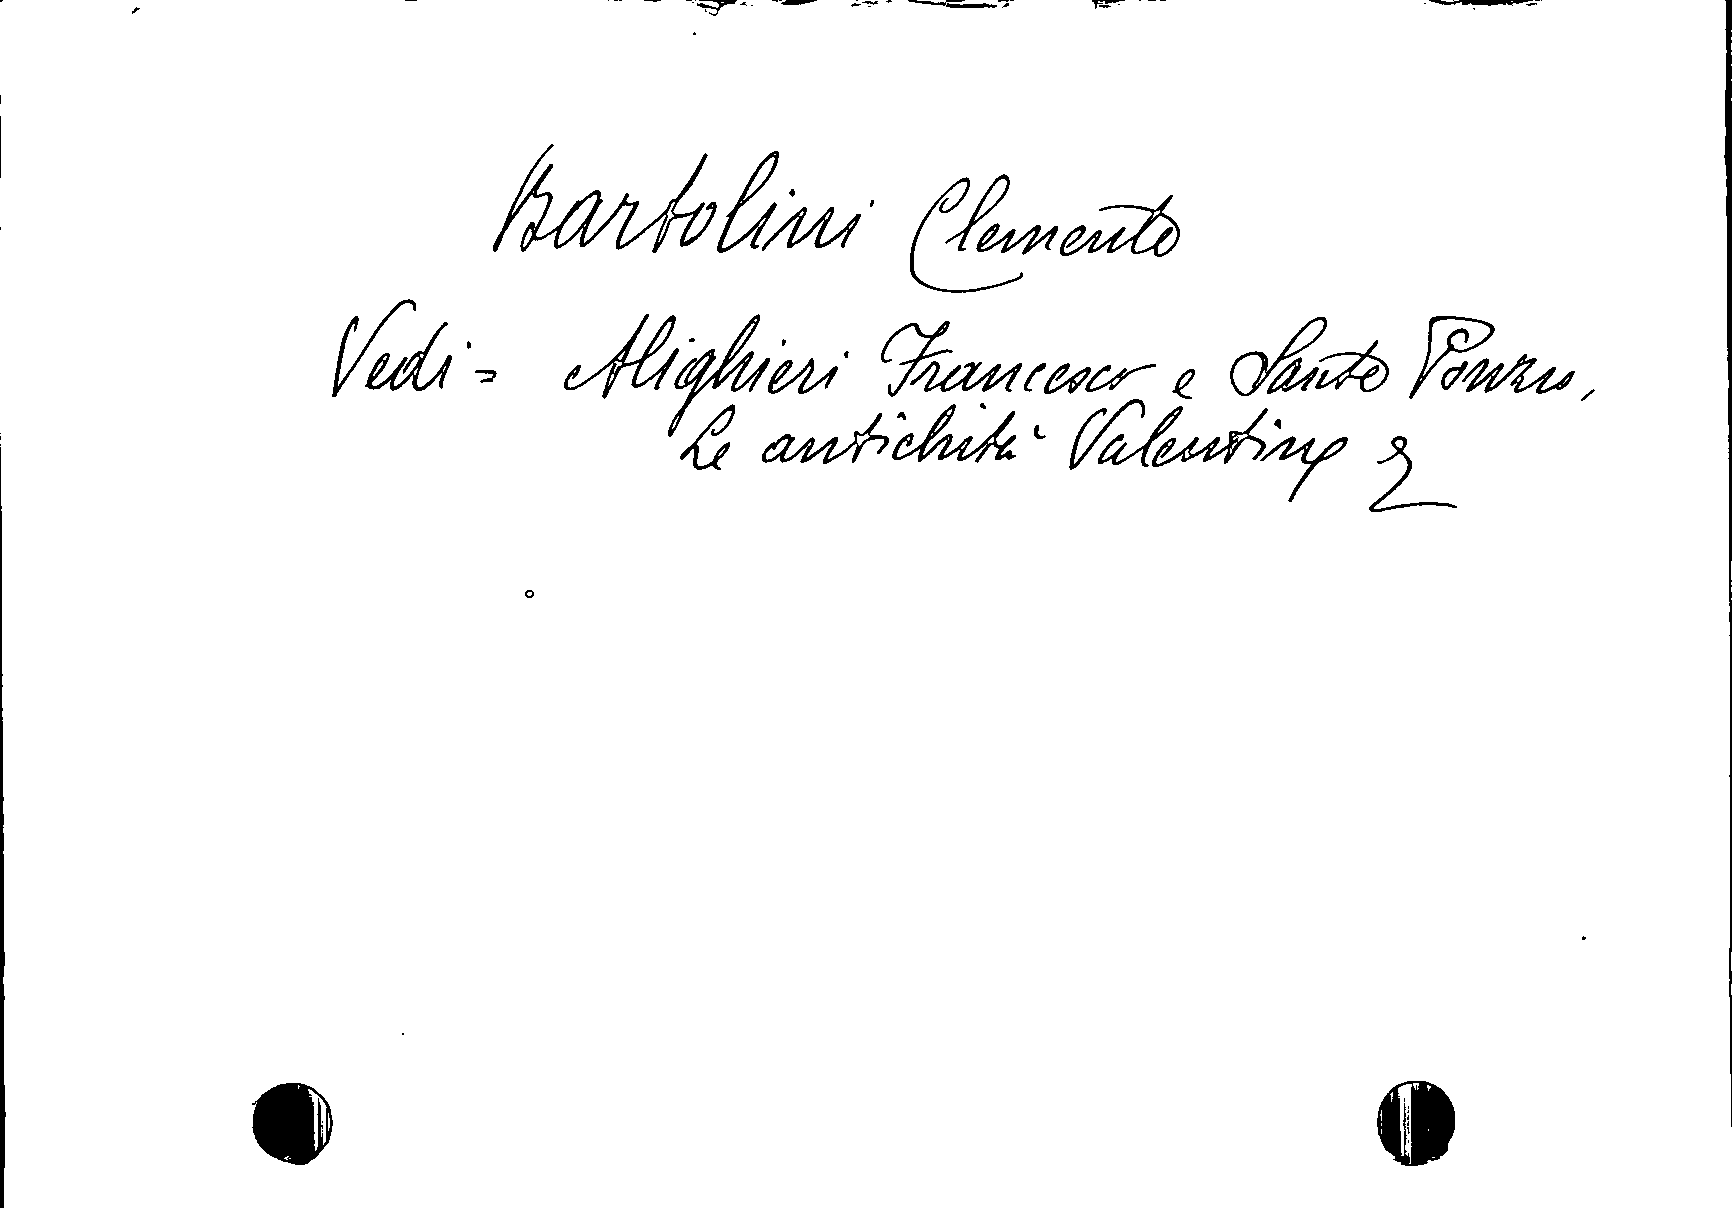 Bartolini Clemente
Vedi = Alighieri Francesco e Sante
Le antichità Valentine